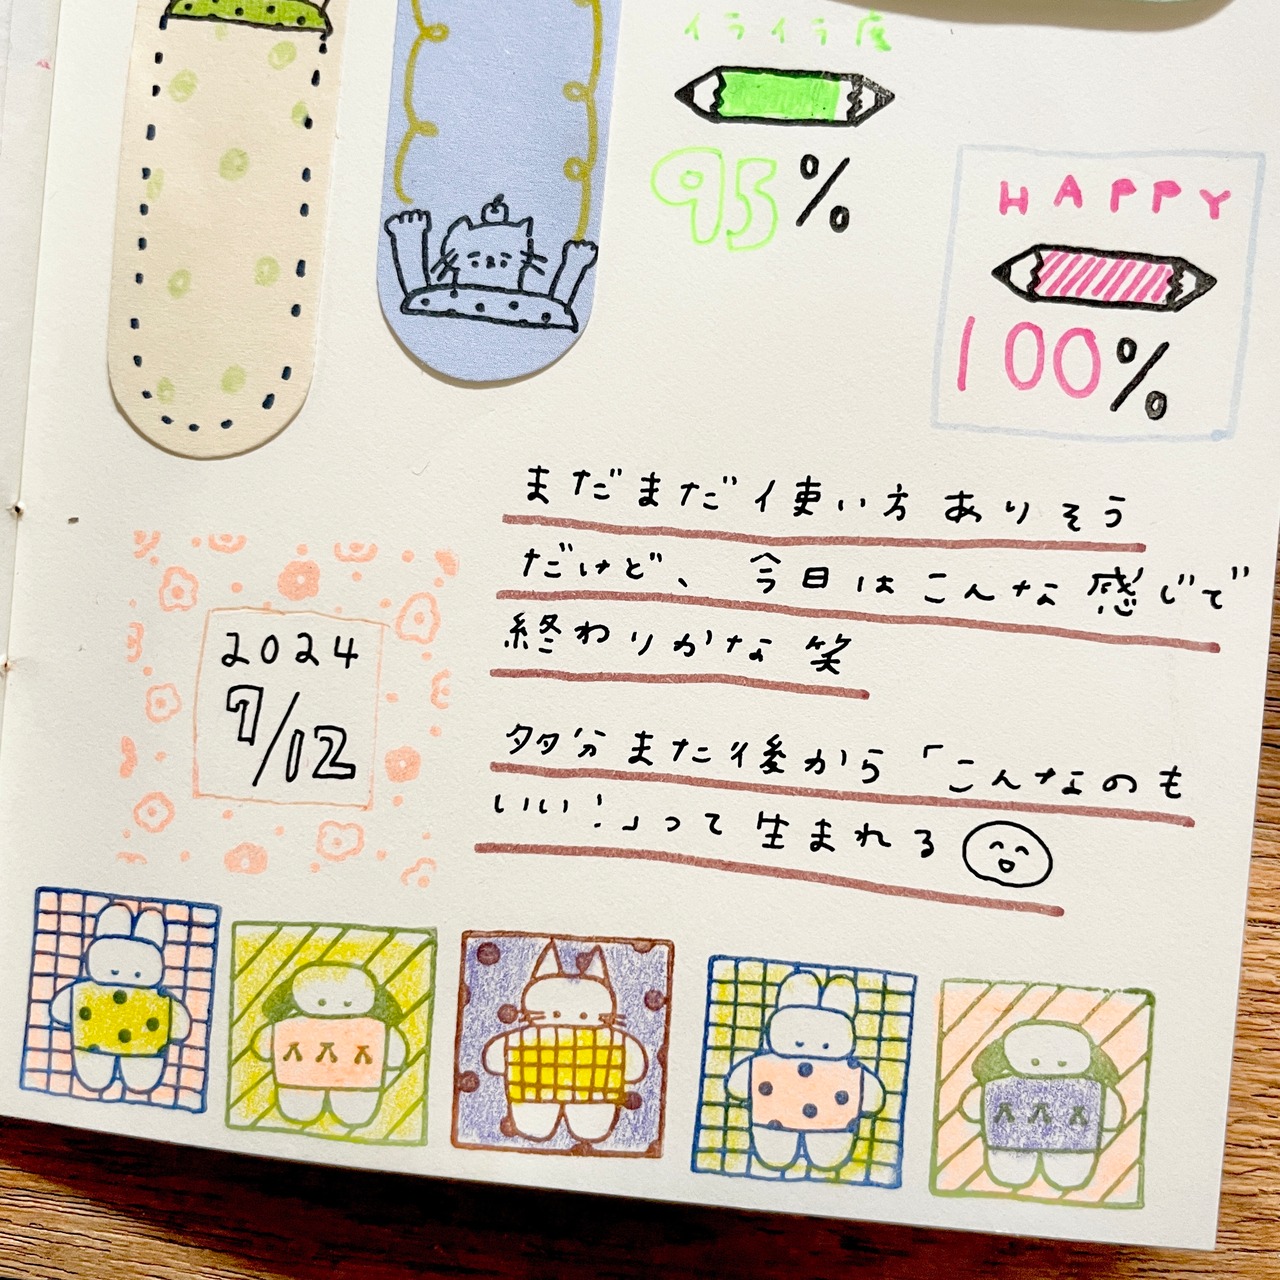 イライラ度
95%
HAPPY
100%
まだまだ使い方ありそう
だけど、今日はこんな感じで
終わりかな笑
2024
7/12
多分また後から「こんなのも
いい!」って生まれる